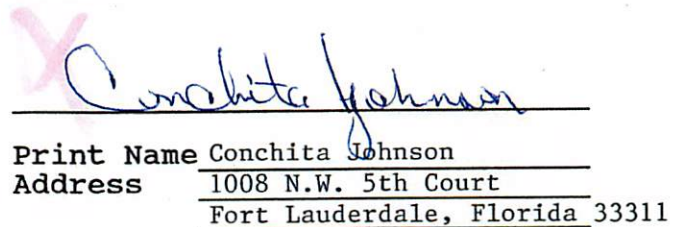 Conchita Johnson
Print Name Conchita Johnson
Address 1008 N.W. 5th Court
Fort Lauderdale, Florida 33311